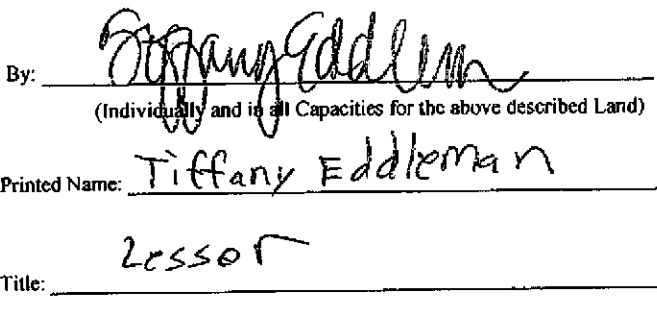 By: Tiffany Eddlem
(Individually and in all Capacities for the above described Land)
Printed Name: Tiffany Eddleman
Lessor
Title: